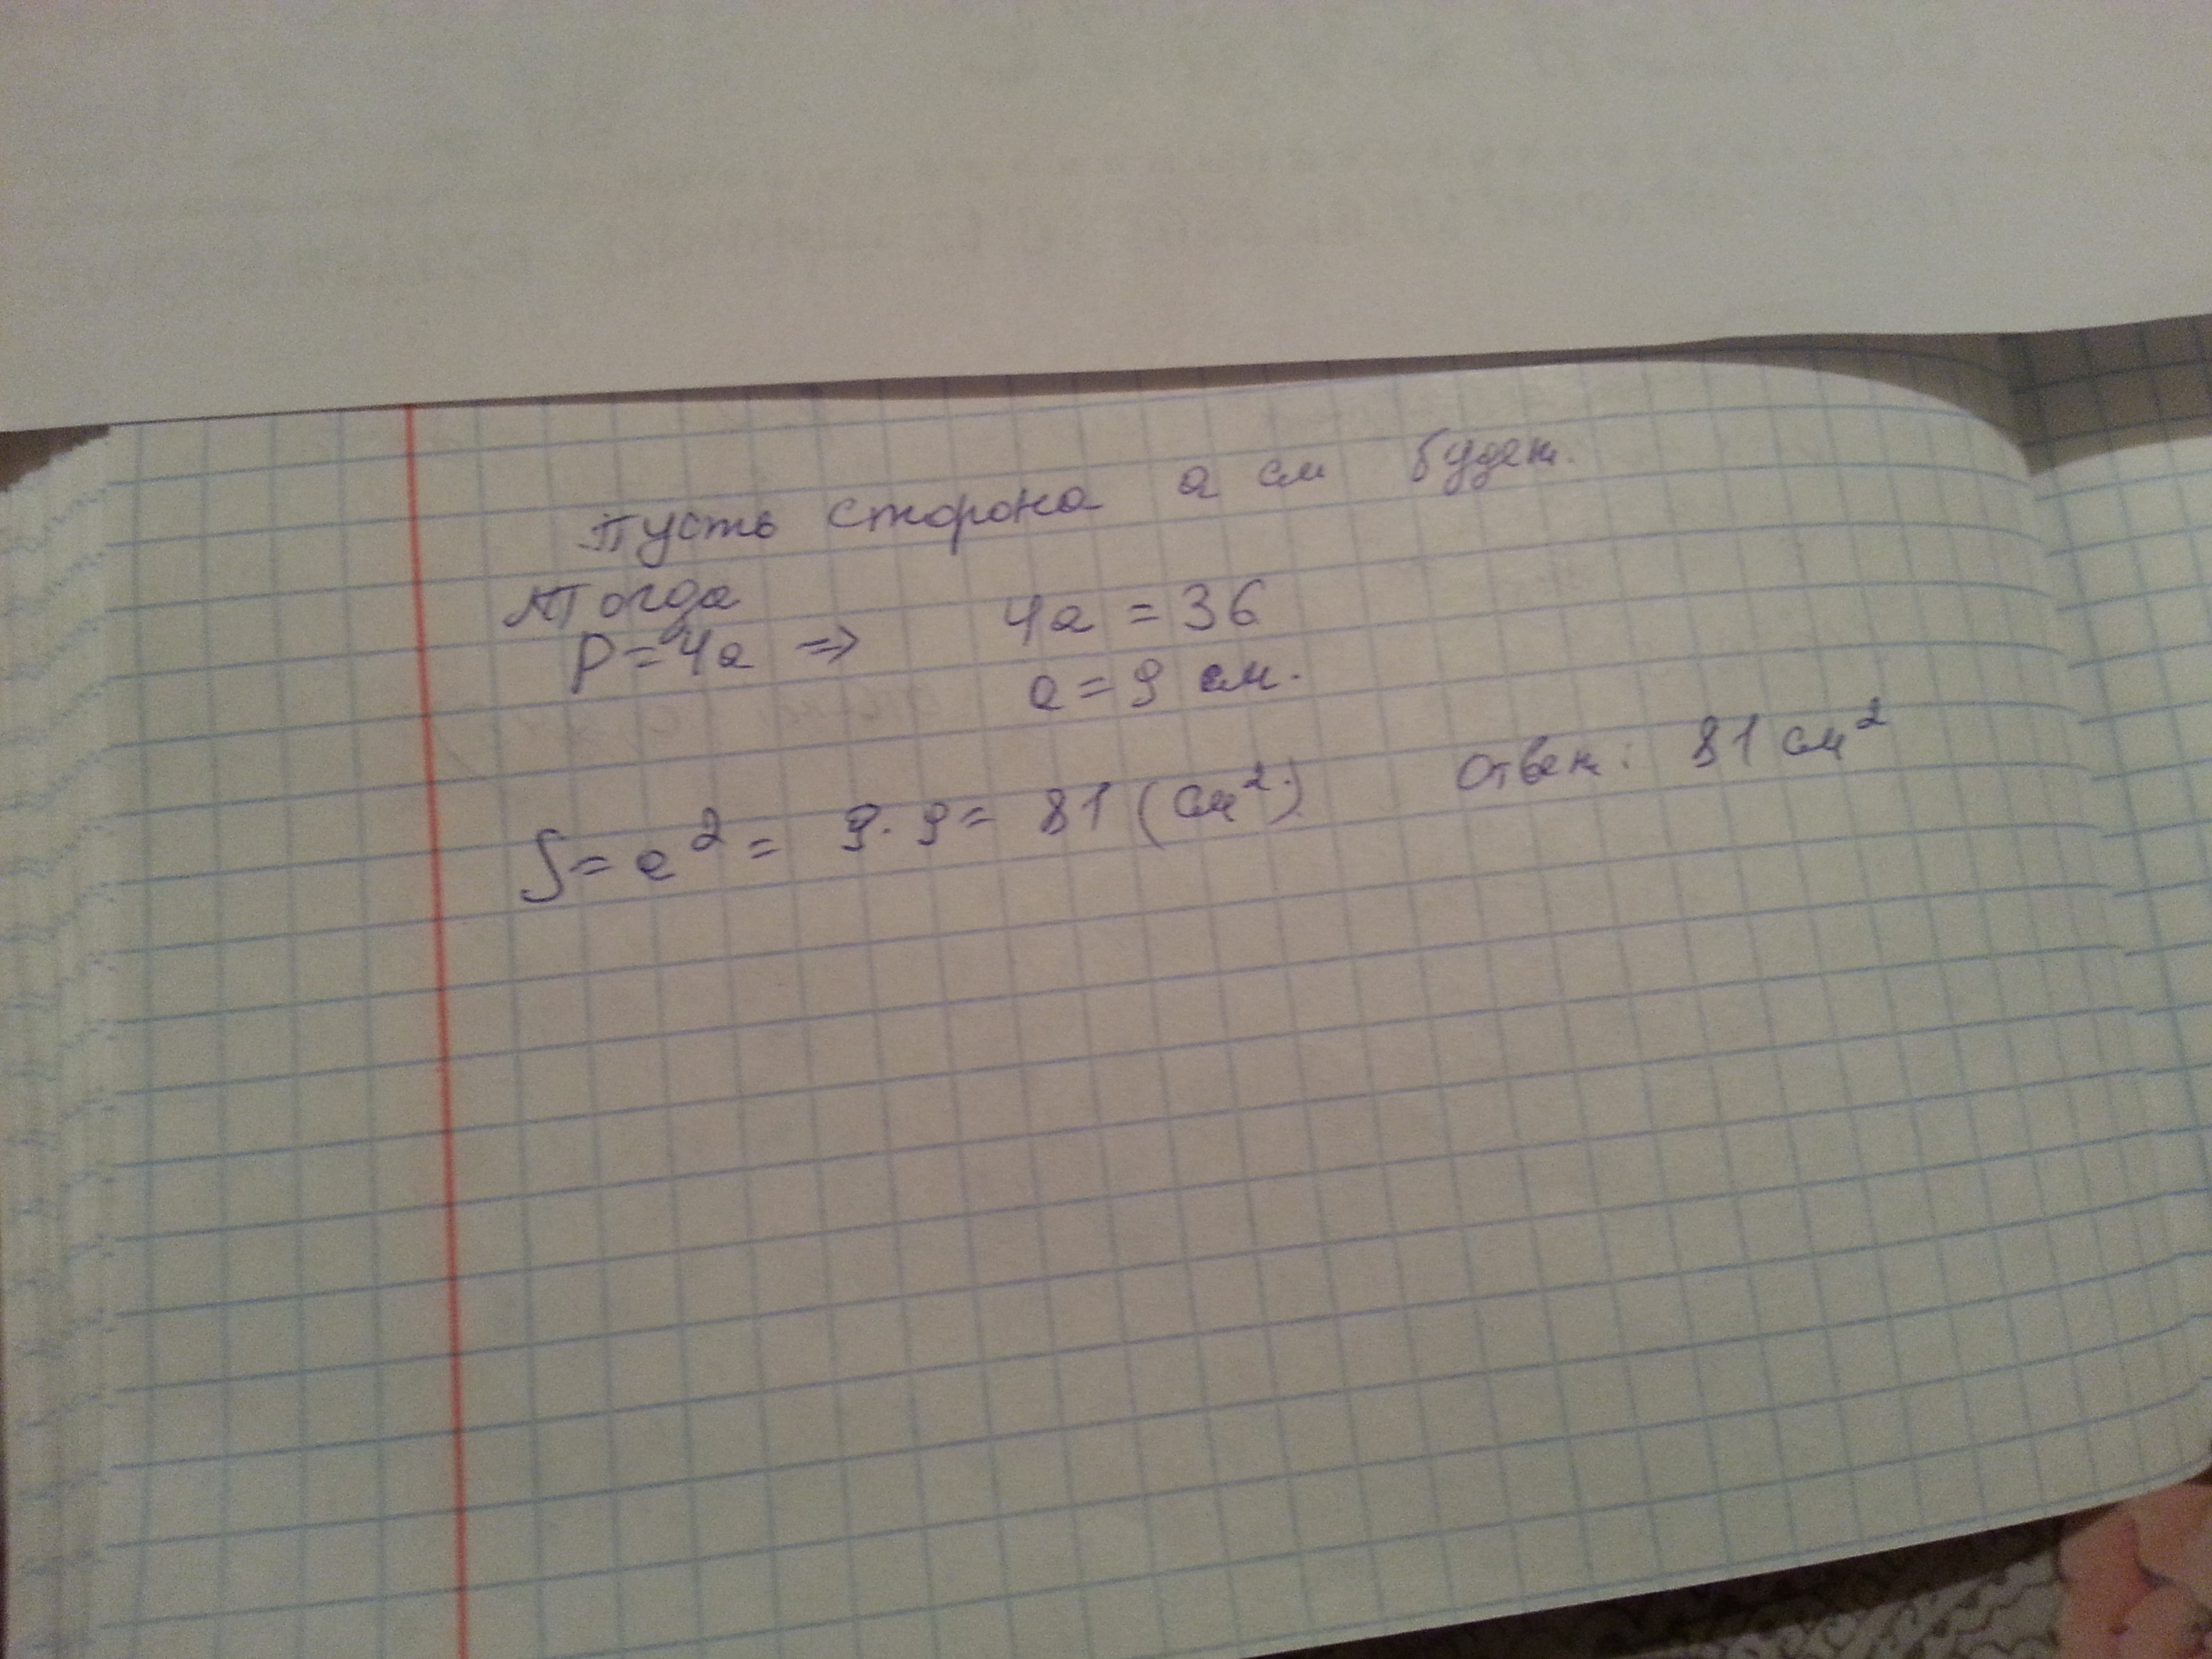 Пусть сторона a см будет.
Тогда
P=4a => 4a = 36
a = 9 см.
S= a² = 9·9= 81 (см².) Ответ: 81 см²